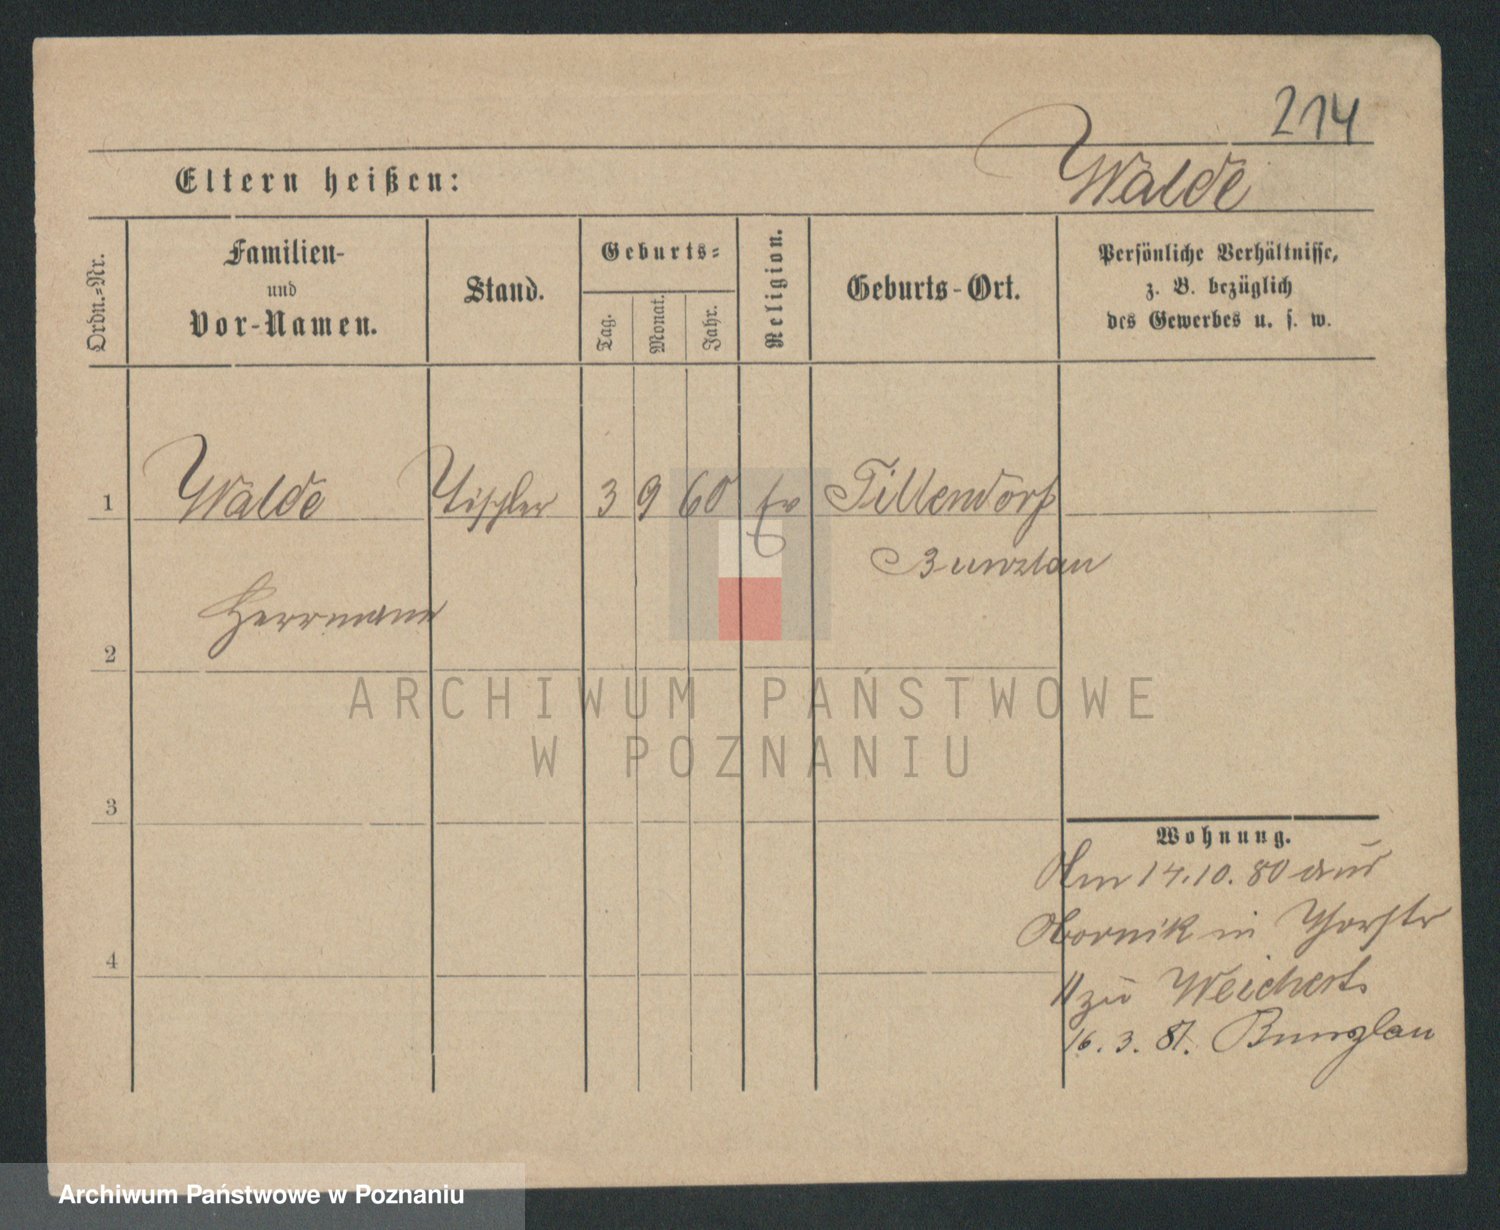 214
Eltern heißen:
Walde
Ordn.-Nr.
Familien-
und
Vor-Namen.
Stand.
Geburts-
Tag.
Monat.
Jahr.
Religion.
Geburts-Ort.
Persönliche Verhältnisse,
z. B. bezüglich
des Gewerbes u. s. w.
1 Walde Tischler 3 9 60 Ev Tillendorf
Bunzlau
Herrmann
2
ARCHIWUM PAŃSTWOWE
W POZNANIU
3
Wohnung.
Am 14.10.80 aus
Obornik in
4
zu Weichert
16.3.81. Bunzlau
Archiwum Państwowe w Poznaniu